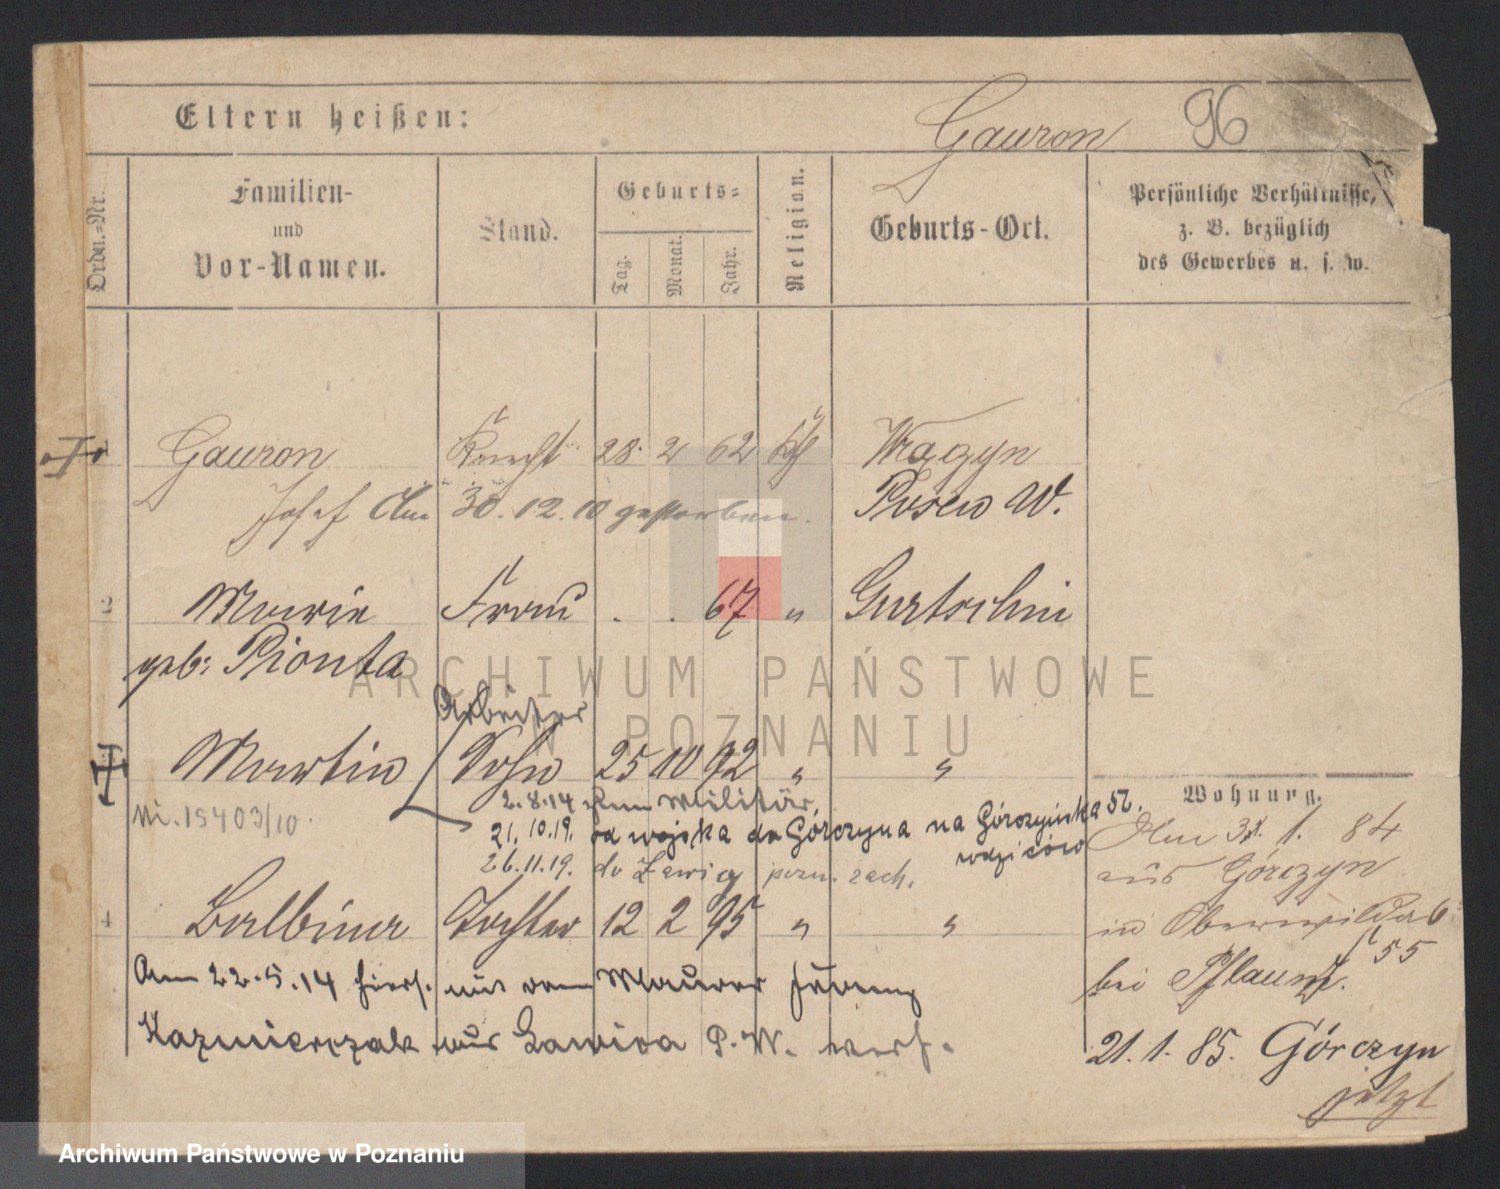 Eltern heißen:
Gauron 96
Ordn.-Nr.
Familien-
und
Vor-Namen.
Stand.
Geburts-
Tag.
Monat.
Jahr.
Religion.
Geburts-Ort.
Persönliche Verhältnisse,
z. B. bezüglich
des Gewerbes u. s. w.
Gauron Knecht 28. 2 62 kth
Josef Am 30.12.10 gestorben. Posen W.
2 Marie Frau . . 67 " Gurtschin
geb: Pionta
Arbeiter
Martin Sohn 25 10 92 " "
2.8.14 zum Militär.
Ni. 15403/10.
21.10.19. od wojska do Górczyna na Górczyńska 52.
rodziców
26.11.19. do Ławicy pozn. zach.
4 Balbina Tochter 12 2 95 " "
Am 22.5.14 hiers. mit dem Maurer
Kazmierczak aus Lawica P.W. verh.
Wohnung.
Am 31. 1. 84
aus Górczyn
in Oberwilda
bei Pflaum. 55
21.1.85. Górczyn
jetzt
ARCHIWUM PAŃSTWOWE
W POZNANIU
Archiwum Państwowe w Poznaniu